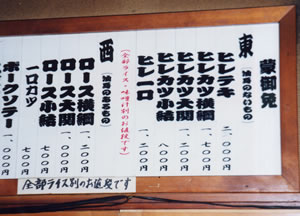 蒙御免
東
【油身のないもの】
ヒレテキ 二、〇〇〇円
ヒレカツ横綱 一、七〇〇円
ヒレカツ大関 一、二〇〇円
ヒレカツ小結 八〇〇円
ヒレ一口 一、二〇〇円
(全部ライス・味噌汁別のお値段です)
西
【油身のあるもの】
ロース横綱
ロース大関 一、〇〇〇円
ロース小結 七〇〇円
一口カツ 七〇〇円
ポークソテー 一、〇〇〇円
全部ライス別のお値段です